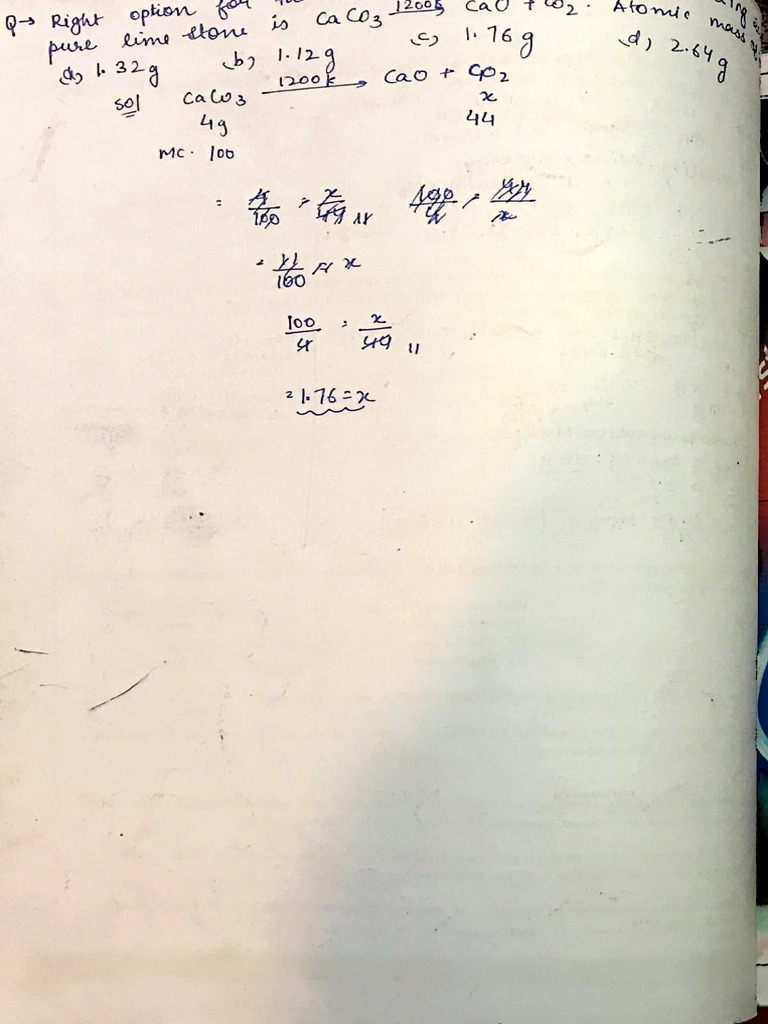 Q→ Right option for
pure lime stone is CaCO3 1200k CaO + CO2. Atomic mass
a) 1.32g b) 1.12g c) 1.76g d) 2.64g
sol CaCO3 1200k → CaO + CO2
4g x
MC. 100 44
= 4/100 = x/44 11 100/4 = 44/x
= 11/100 = x
100/4 = x/44 11
= 1.76 = x